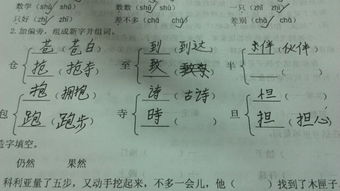 数学（shù shǔ） 数数（shù shǔ） 一只（zhī zhǐ）
只好（zhī zhǐ） 差不多（chā chà） 差别（chā chà）
2.加偏旁，组成新字并组词。
苍（苍白） 到（到达） 伴（伙伴）
仓 至 半
抢（抢夺） 致（） （ ）
抱（拥抱） 詩（古诗） 但（ ）
包 寺 旦
跑（跑步） 時（ ） 担（担心）
字填空。
仍然 果然
科利亚量了五步，又动手挖起来，不多一会儿，他（ ）找到了木匣子